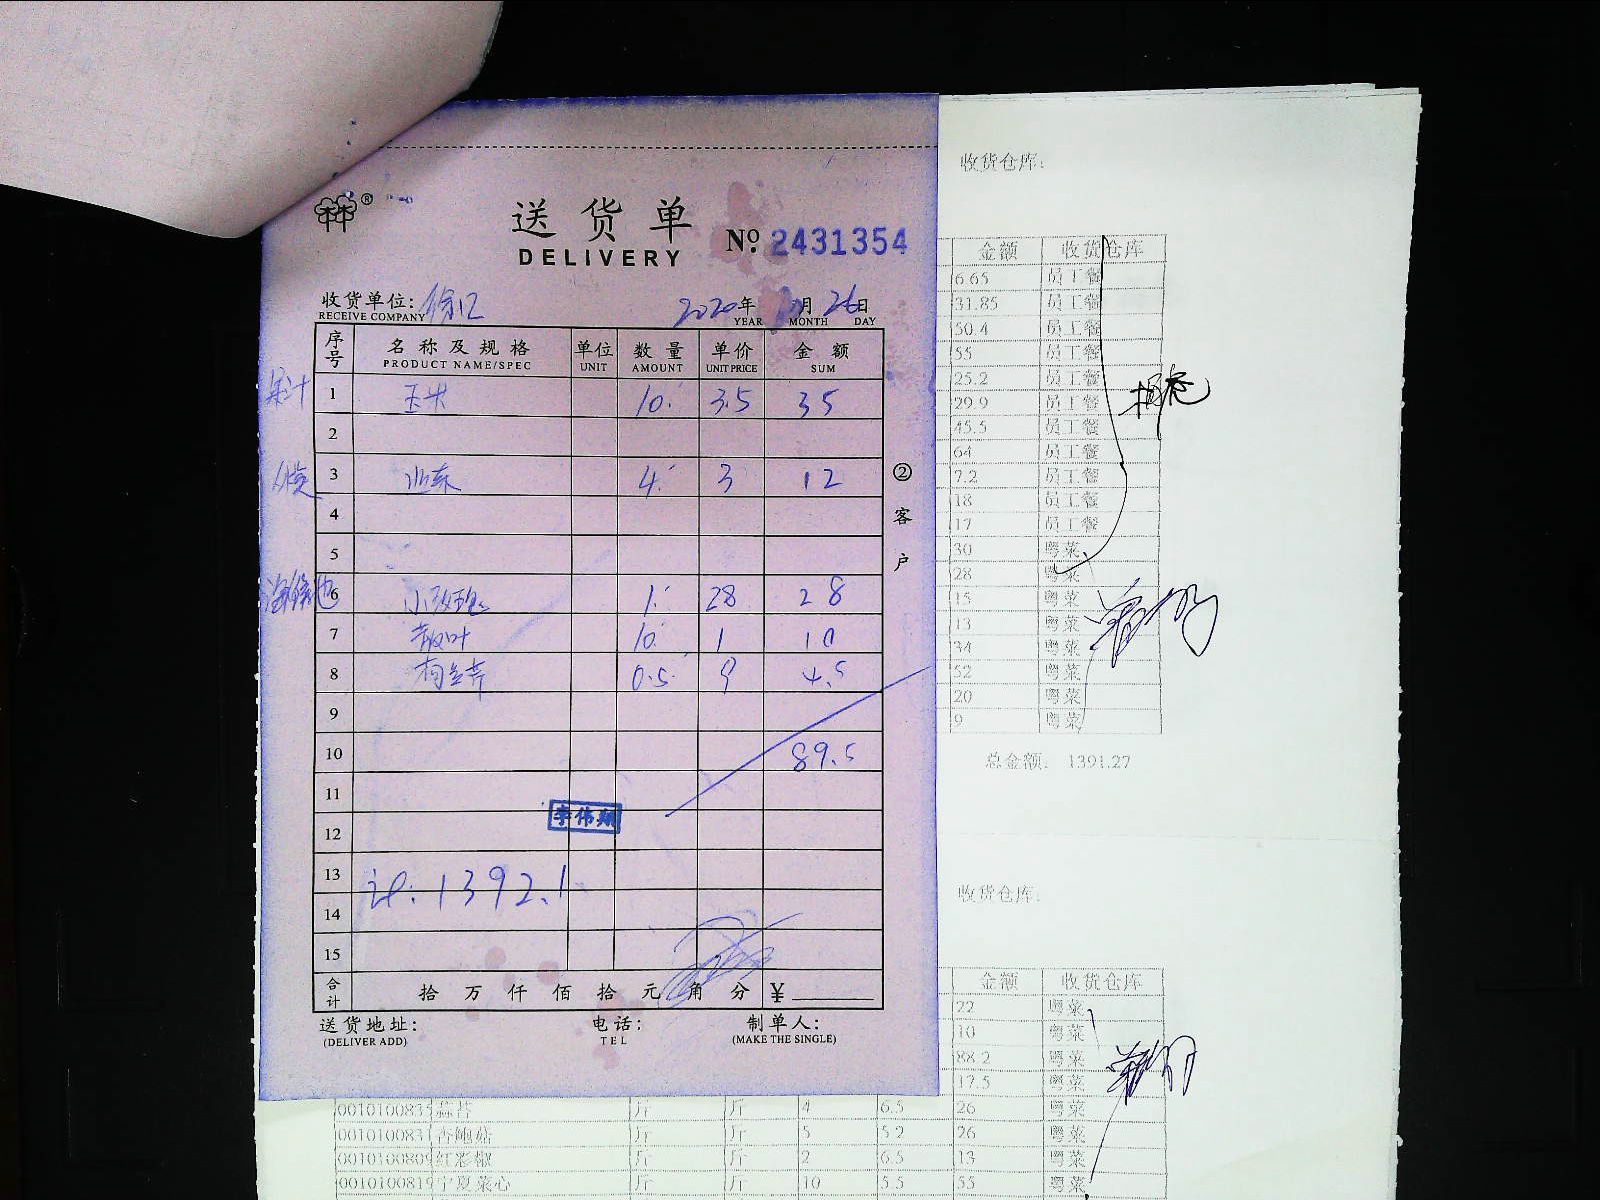 送货单
DELIVERY
No. 2431354
收货单位:
RECEIVE COMPANY
2020年 月 26日
YEAR MONTH DAY
序号 名称及规格 单位 数量 单价 金额
PRODUCT NAME/SPEC UNIT AMOUNT UNIT PRICE SUM
1 玉米 10 3.5 35
2
3 4 3 12
4
5
6 小玫瑰 1 28 28
7 10 1 10
8 0.5 9 4.5
9
10 89.5
11
12
李伟
13 计: 1392.1
14
15
合计 拾万仟佰拾元角分 ¥
送货地址: 电话: 制单人:
(DELIVER ADD) TEL (MAKE THE SINGLE)
② 客户
收货仓库:
金额 收货仓库
6.65 员工餐
31.85 员工餐
50.4 员工餐
55 员工餐
25.2 员工餐
29.9 员工餐
45.5 员工餐
64 员工餐
7.2 员工餐
18 员工餐
17 员工餐
30 粤菜
28 粤菜
15 粤菜
13 粤菜
34 粤菜
52 粤菜
20 粤菜
9 粤菜
总金额: 1391.27
收货仓库:
金额 收货仓库
22 粤菜
10 粤菜
88.2 粤菜
17.5 粤菜
蒜苔 斤 斤 4 6.5 26 粤菜
杏鲍菇 斤 斤 5 5.2 26 粤菜
0010100809 红彩椒 斤 斤 2 6.5 13 粤菜
0010100819 宁夏菜心 斤 斤 10 5.5 55 粤菜